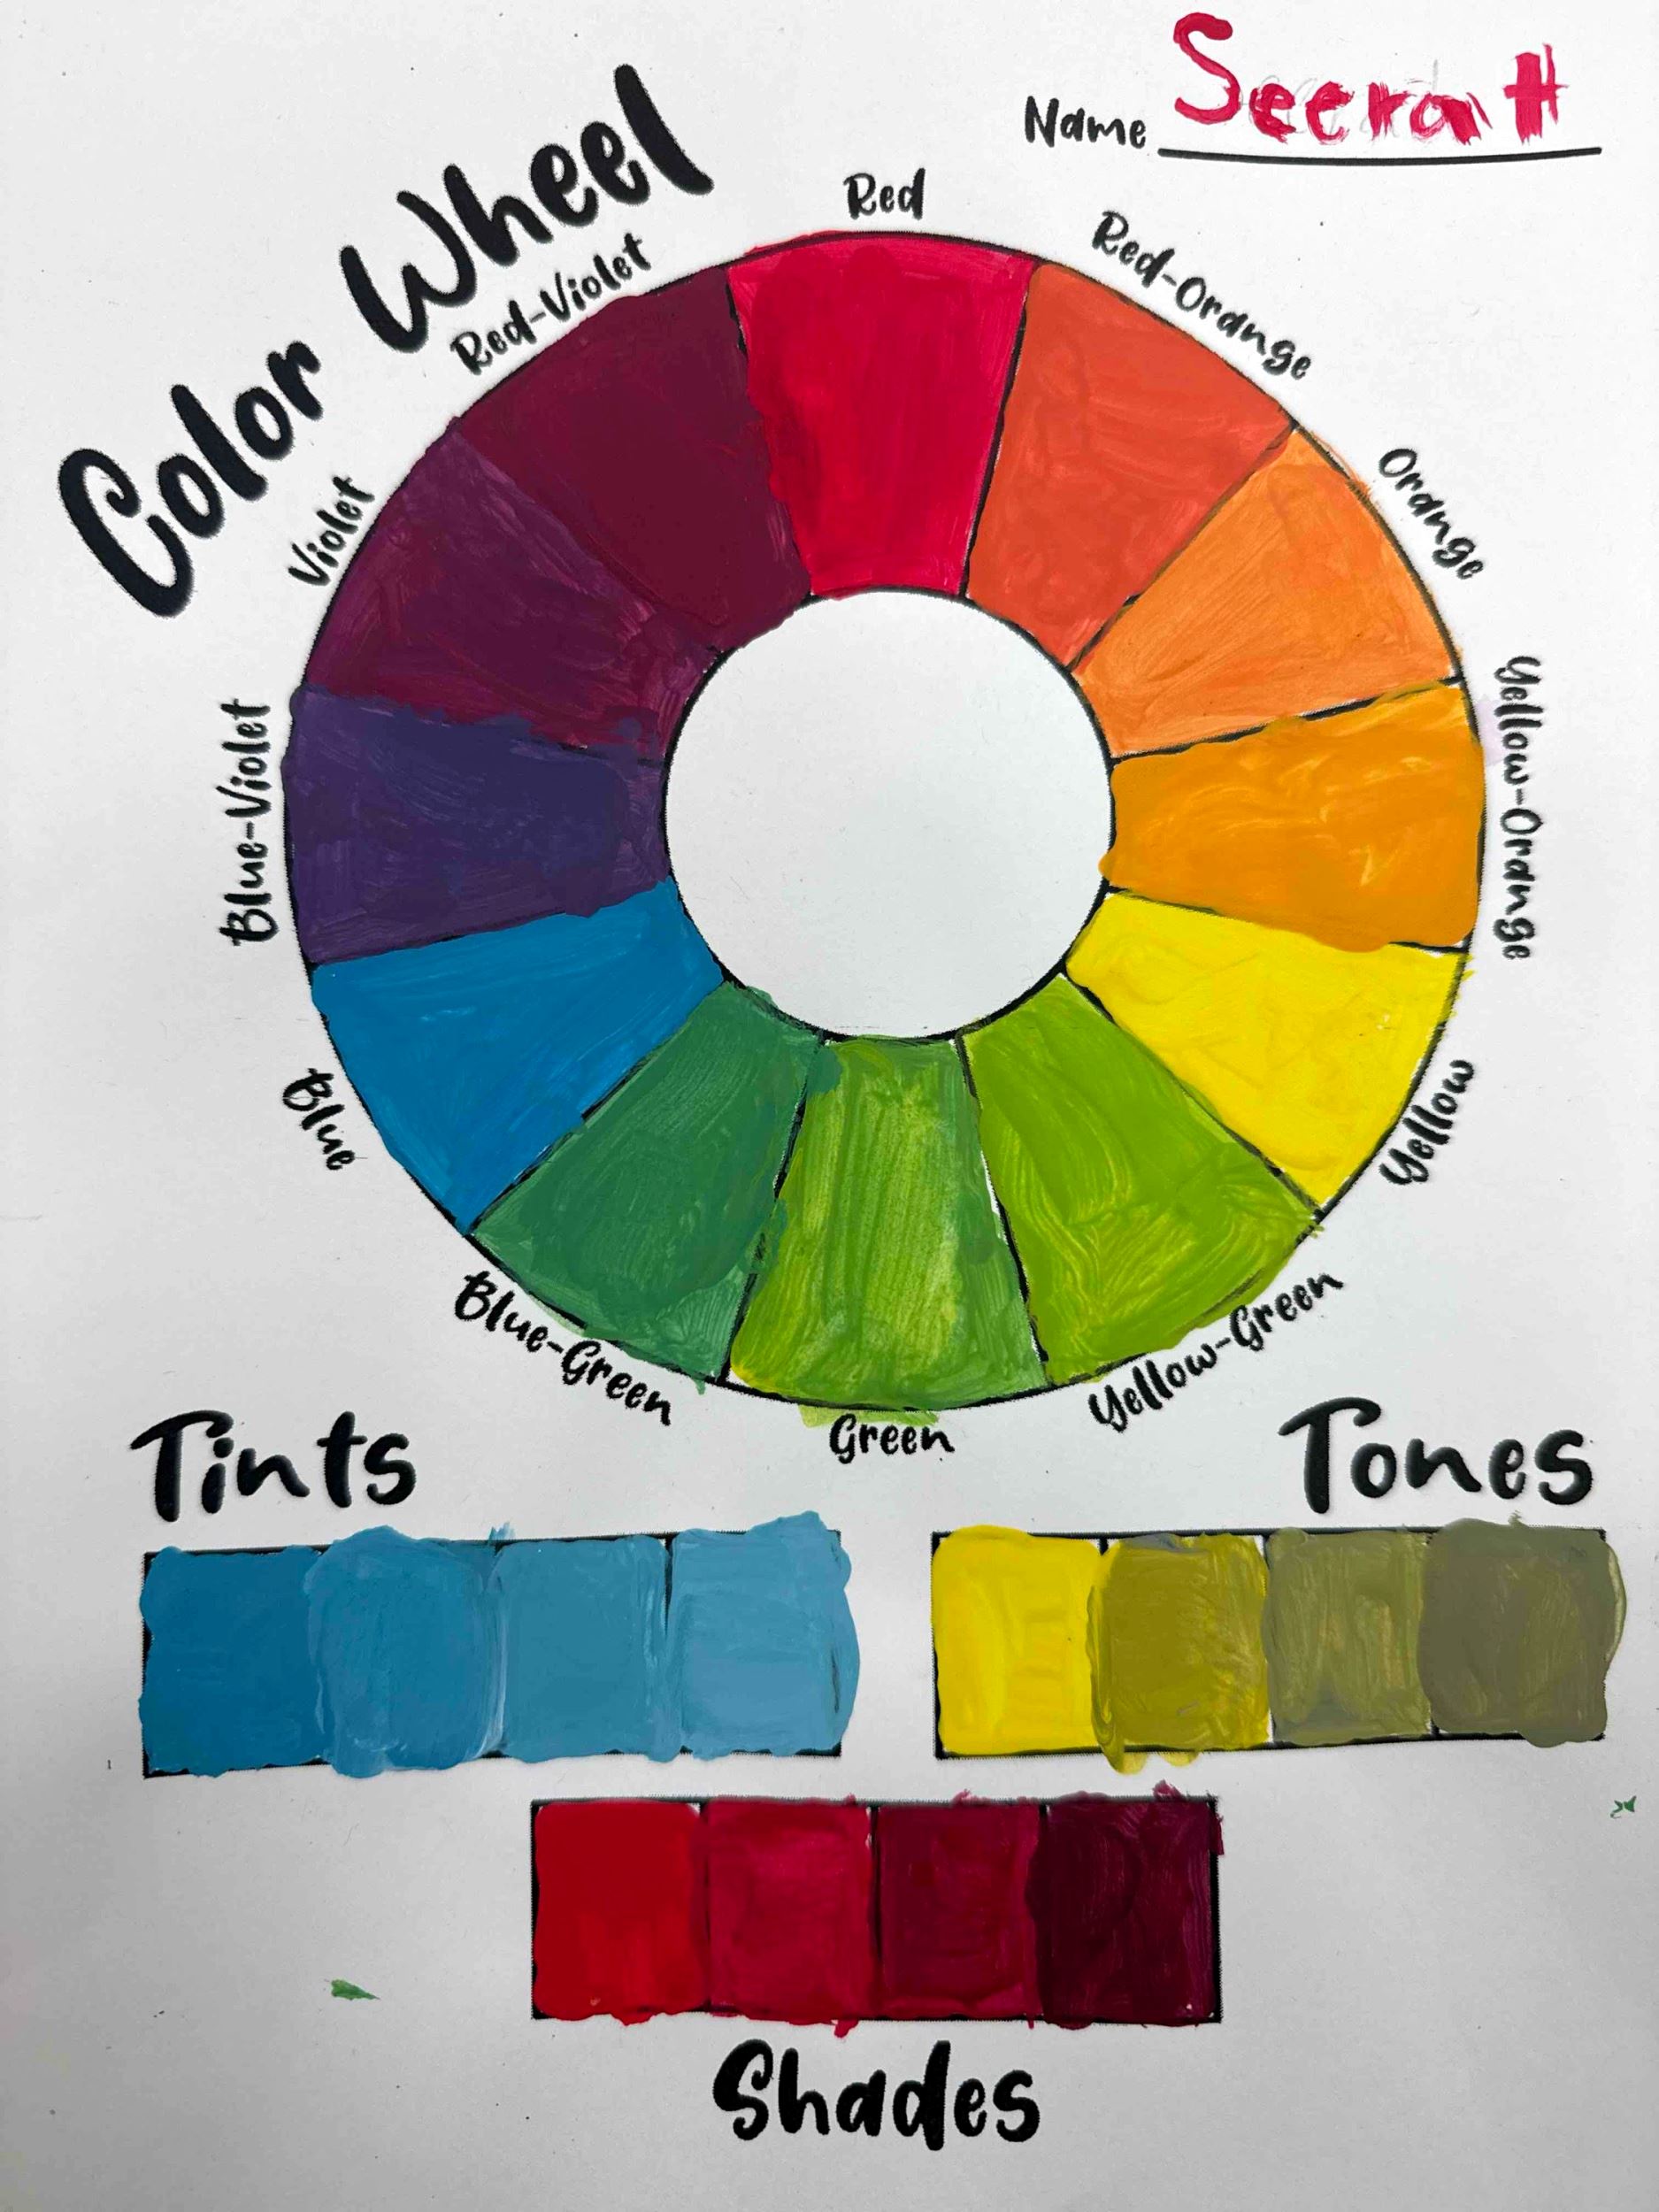 Name Seerat
Color Wheel
Red
Red-Orange
Orange
Yellow-Orange
Yellow
Yellow-Green
Green
Blue-Green
Blue
Blue-Violet
Violet
Red-Violet
Tints
Tones
Shades